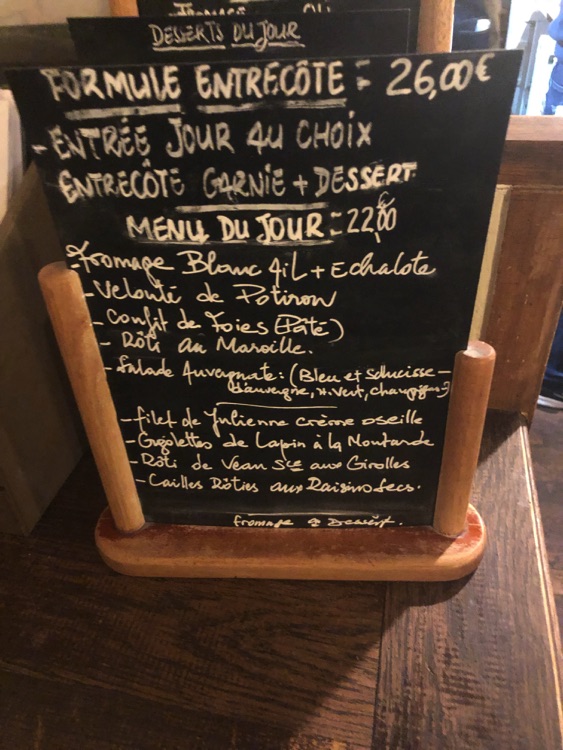 DESSERTS DU JOUR
FORMULE ENTRECÔTE = 26,00€
- ENTRÉE JOUR AU CHOIX
ENTRECÔTE GARNIE + DESSERT
MENU DU JOUR = 22,00€
- Fromage Blanc Ail + Echalote
- Velouté de Potiron
- Confit de Foies (Pâté)
- Rôti au Maroille.
- Salade Auvergnate: (Bleu et Saucisse
d'auvergne, H. Vert, champignons)
- filet de Julienne crème oseille
- Gigolettes de Lapin à la Moutarde
- Rôti de Veau Sce aux Girolles
- Cailles Rôties aux Raisins secs.
fromage & Dessert.